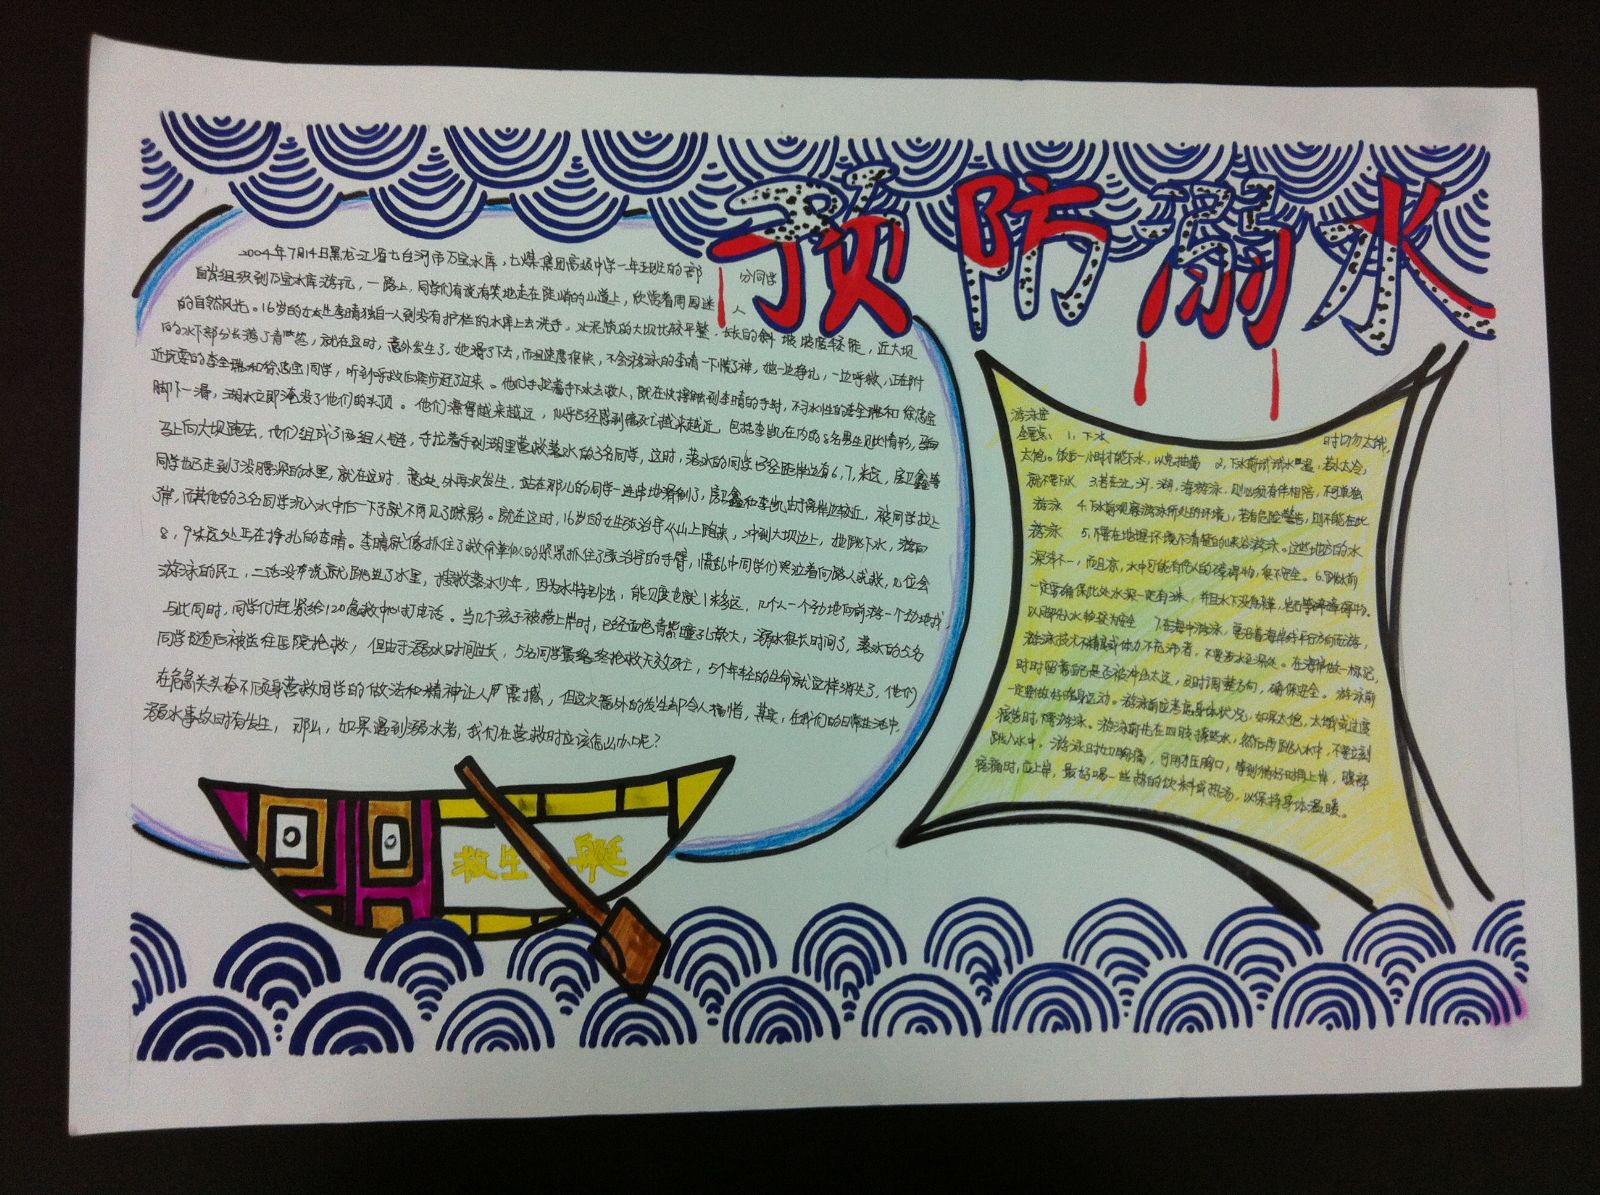 预防溺水
2004年7月14日黑龙江省七台河市万宝水库,七煤集团高级中学一年五班的部分同学
自发组织到万宝水库游玩,一路上,同学们有说有笑地走在陡峭的山道上,欣赏着周围迷人
的自然风光。16岁的女生李晴独自一人到没有护栏的水库上去洗手,水泥质的大坝比较平整,长长的斜坡坡度较陡,近大坝
的水下部分长满了青苔,就在这时,意外发生了,她滑了下去,而且速度很快,不会游泳的李晴一下慌了神,她一边挣扎,一边呼救,正在附
近玩耍的李全瑞和徐忠宝同学,听到呼救后疾步赶了过来。他们手挽着手下水去救人,就在快接触到李晴的手时,不习水性的李全瑞和徐忠宝
脚下一滑,湖水立即淹没了他们的头顶。他们滑得越来越远,似乎已经感到离死亡越来越近,包括李凯在内的5名男生见此情形,
马上向大坝跑去,他们组成了两组人链,手拉着手到湖里营救落水的3名同学,这时,落水的同学已经距岸边有6,7,米远,房卫鑫等
同学也已走到了没腰深的水里,就在这时,意外再次发生,站在那儿的同学一连串地滑倒了,房卫鑫和李凯由于离岸边较近,被同学拉上
了岸,而其他的3名同学沉入水中后一下子就不再见了踪影。就在这时,16岁的女生张治宇从山上跑来,冲到大坝边上,她跳下水,游向
8,9米远处正在挣扎的李晴。李晴就像抓住了救命草似的紧紧抓住了张治宇的手臂,慌乱中同学们哭泣着向路人求救,几位会
游泳的民工,二话没有说就跳进了水里,搜救落水少年,因为水特别浊,能见度也就1米多远,几个人一个劲地向前游一个劲地找,
与此同时,同学们赶紧给120急救中心打电话。当几个孩子被救上岸时,已经面色青紫瞳孔散大,溺水很长时间了,落水的5名
同学随后被送往医院抢救,但由于溺水时间过长,5名同学最终抢救无效死亡,5个年轻的生命就这样消失了,他们
在危急关头奋不顾身营救同学的做法和精神让人严震撼,但这次意外的发生却令人惋惜,其实,在我们的日常生活中,
溺水事故时有发生,那么,如果遇到溺水者,我们在营救时应该怎么办呢?
救生艇
游泳注
全要点:1.下水时切勿太饿,
太饱。饭后一小时才能下水,以免抽筋 2.下水前试试水温,若水太冷,
就不要下水 3.若在江,河,湖,海游泳,则必须有伴相陪,不可单独
游泳 4.下水前观察游泳所处的环境,若有危险警告,则不能在此
游泳 5.不要在地理环境不清楚的峡谷游泳。这些地方的水
深浅不一,而且凉,水中可能有伤人的障碍物,很不安全。6.跳水前
一定要确保此处水深一定有3米,并且水下没有杂草,岩石等障碍物。
以脚先入水较为安全 7.在海中游泳,要沿着海岸线平行方向而游,
游泳技术不精良或体力不充沛者,不要涉水至深处。在海岸做一标记,
时时留意自己是否被冲出太远,及时调整方向,确保安全。游泳前
一定要做好暖身运动。游泳前应考虑身体状况,如果太饱,太饿或过度
疲劳时,不要游泳。游泳前先在四肢撩些水,然后再跳入水中,不要立刻
跳入水中。游泳时如胸痛,可用力压胸口,等到稍好时再上岸,腹部
疼痛时,应上岸,最好喝一些热的饮料或热汤,以保持身体温暖。